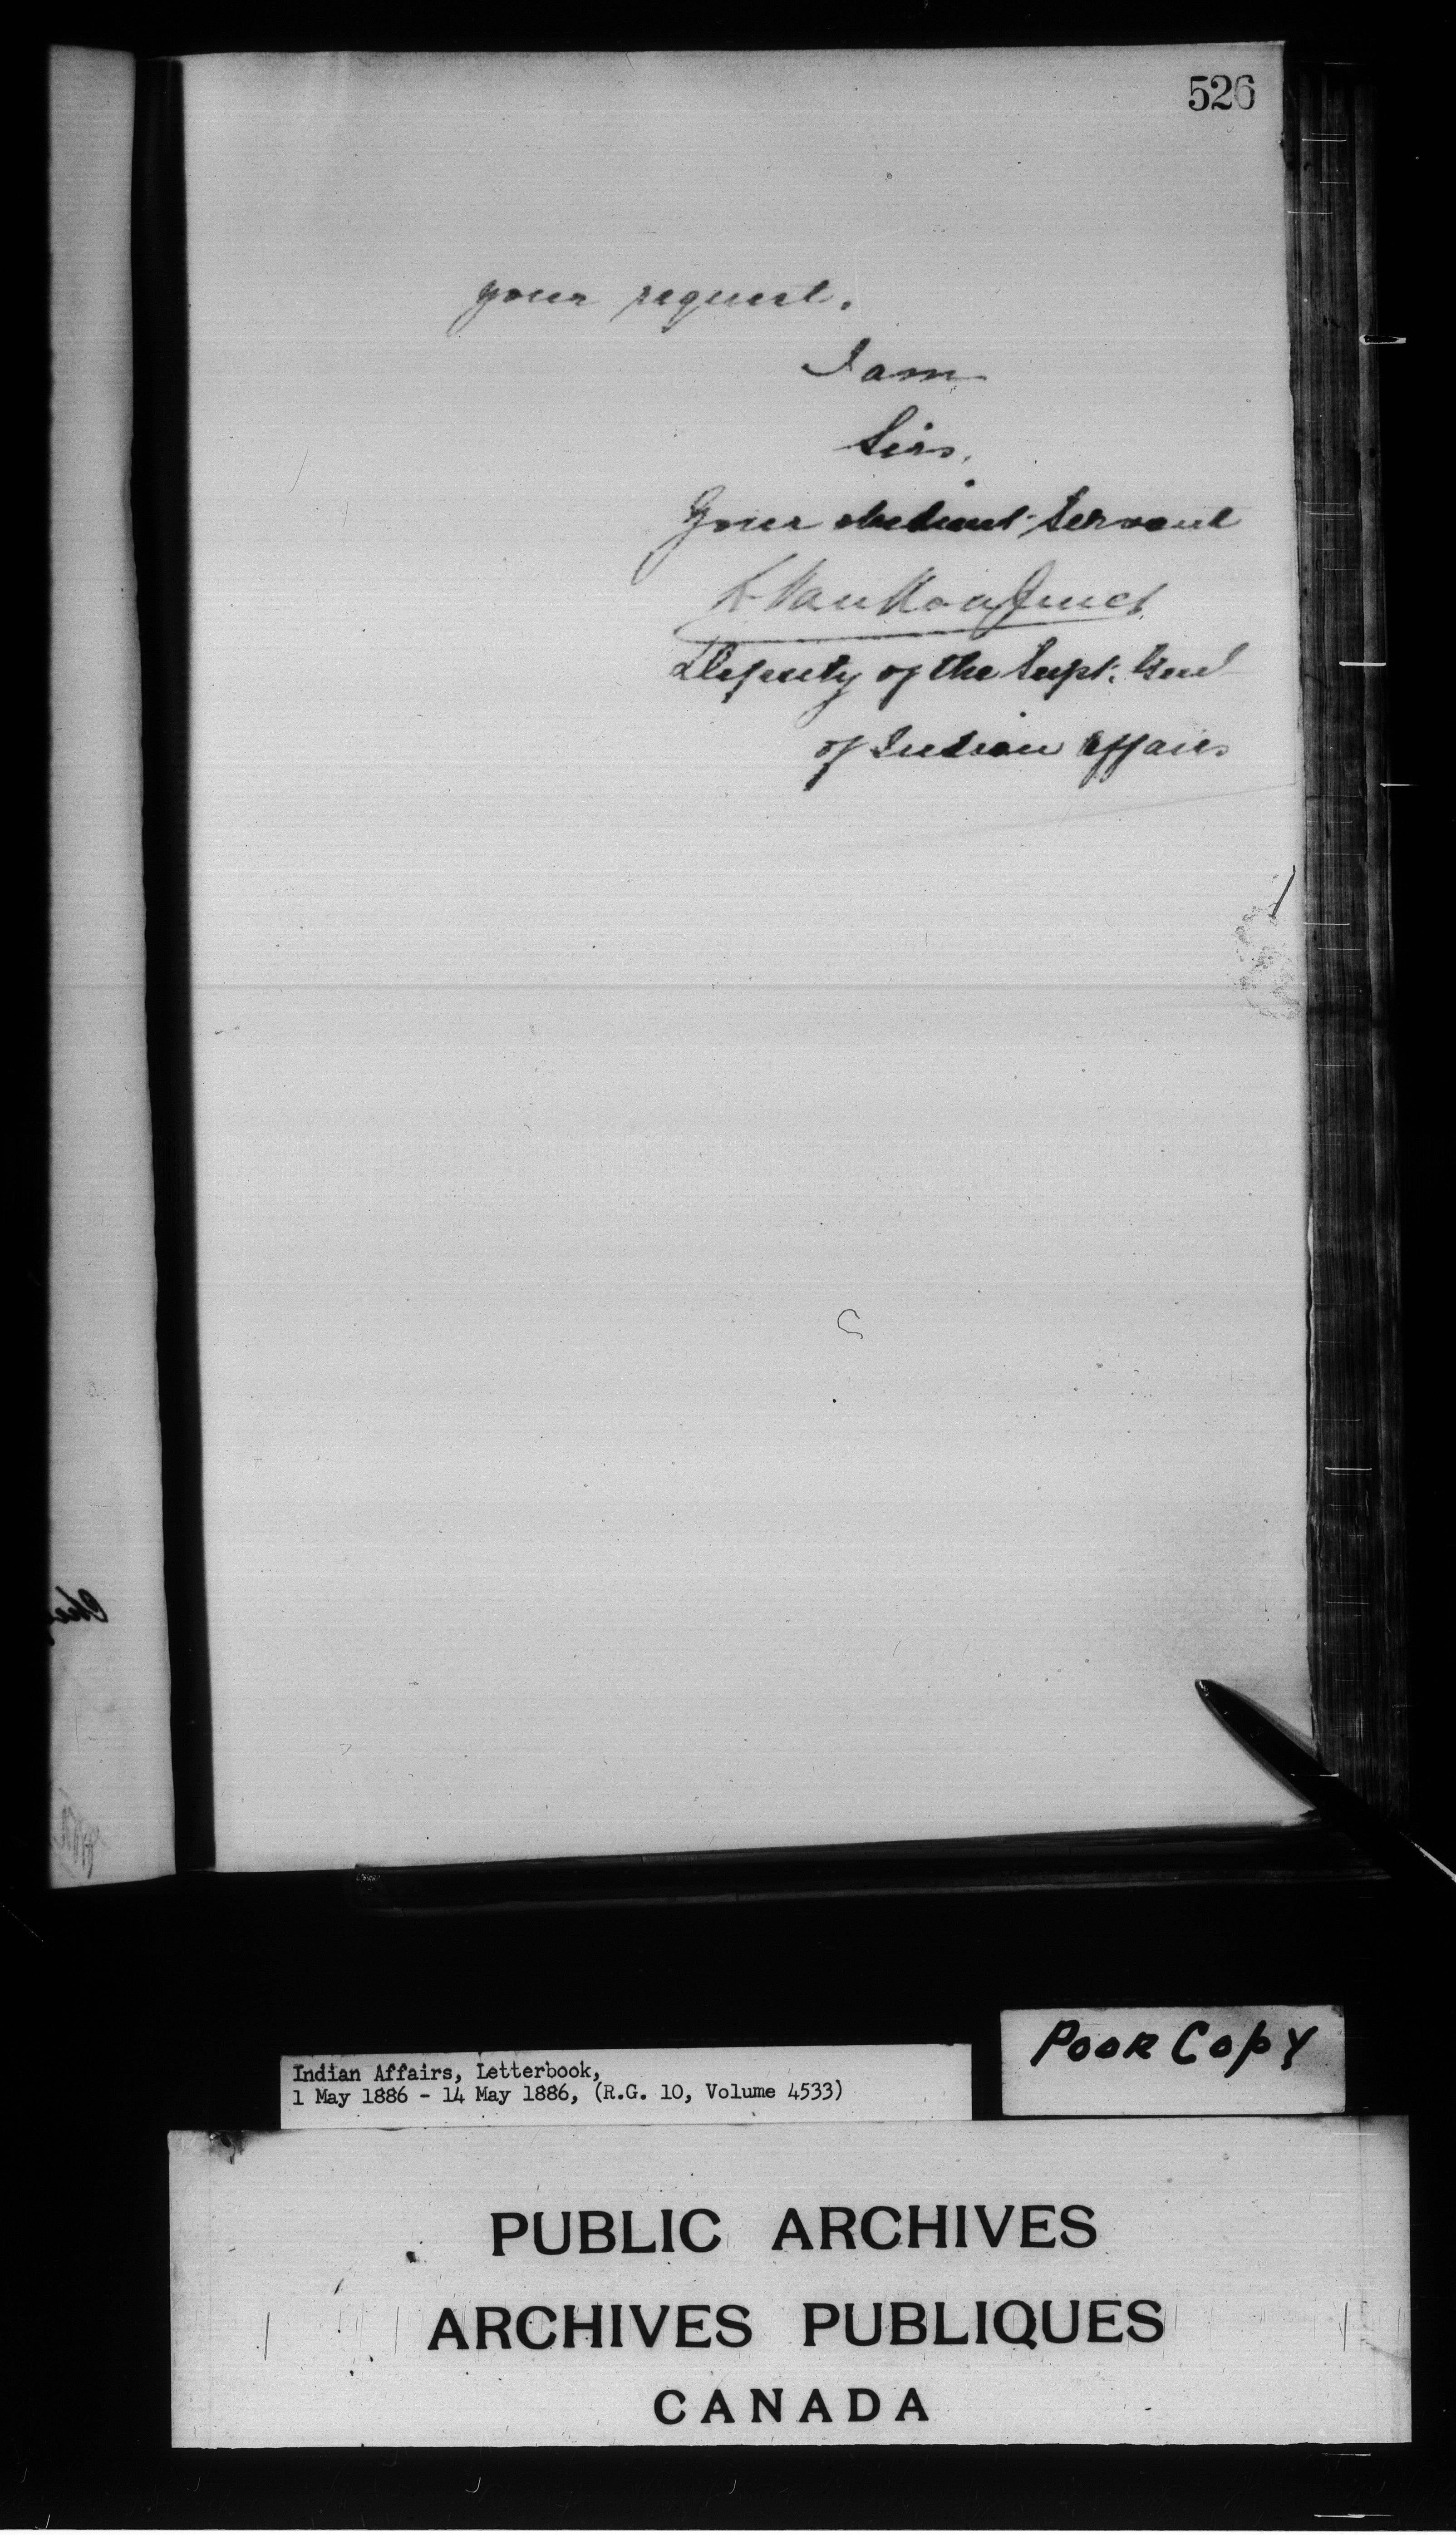 526
your request.
I am
Sirs,
Your obedient Servant
L. VanKoughnet
Deputy of the Supt. Genl
of Indian Affairs
Poor Copy
Indian Affairs, Letterbook,
1 May 1886 - 14 May 1886, (R.G. 10, Volume 4533)
PUBLIC ARCHIVES
ARCHIVES PUBLIQUES
CANADA